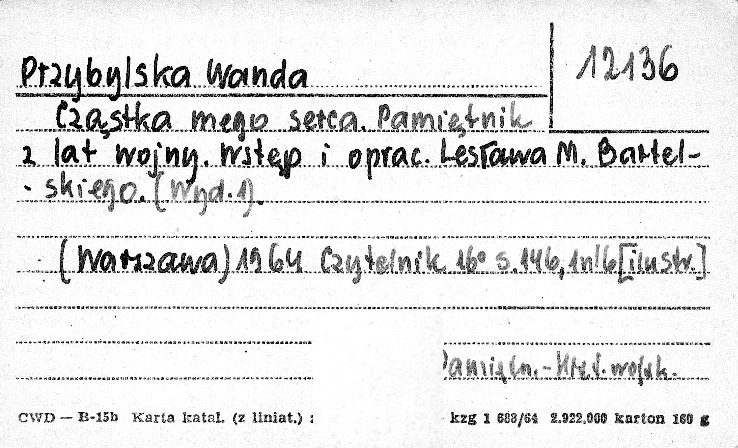 12136
Przybylska Wanda
Cząstka mego serca. Pamiętnik
z lat wojny. Wstęp i oprac. Lesława M. Bartel-
skiego. (Wyd. 1).
(Warszawa) 1964 Czytelnik 16° s. 146, 1nl 6 [ilustr.]
Pamiętn. -
CWD — B-15b Karta katal. (z liniat.) : kzg 1 683/64 2.922.000 karton 160 g